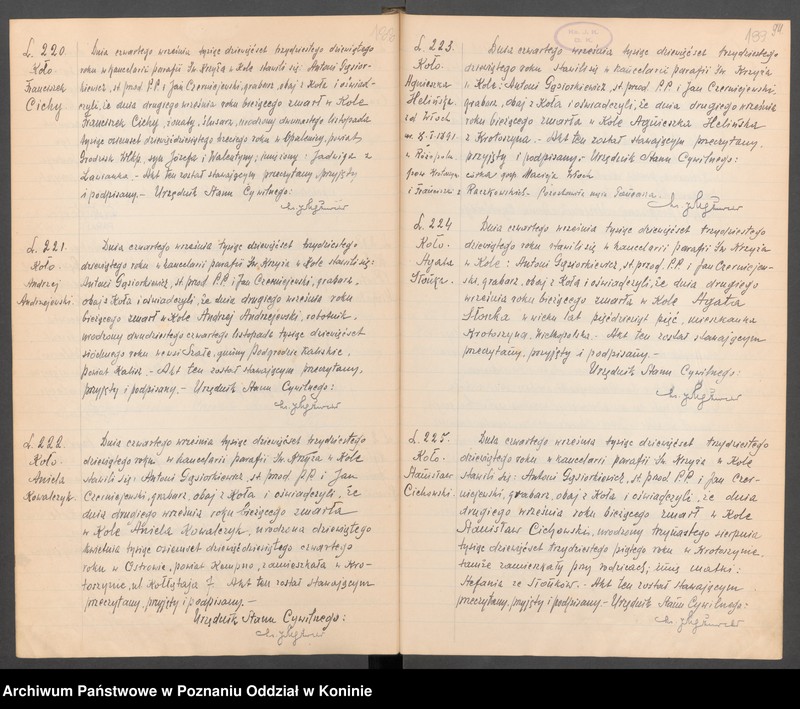 L. 220.
Koło
Franciszek
Cichy
Dnia czwartego września tysiąc dziewięćset trzydziestego dziewiątego
roku w kancelarii parafii Św. Krzyża w Kole stawili się: Antoni Gąsior-
kiewicz, st. przod. P.P. i Jan Czerniejewski, grabarz, obaj z Koła i oświad-
czyli, że dnia drugiego września roku bieżącego zmarł w Kole
Franciszek Cichy, żonaty, ślusarz, urodzony dwunastego listopada
tysiąc osiemset dziewięćdziesiątego trzeciego roku w Opalenicy, powiat
Grodzisk Wlkp. syn Józefa i Walentyny; imię żony: Jadwiga z
. - Akt ten został stawającym przeczytany, przyjęty
i podpisany. - Urzędnik Stanu Cywilnego:
L. 221.
Koło.
Andrzej
Andrzejewski.
Dnia czwartego września tysiąc dziewięćset trzydziestego
dziewiątego roku w kancelarii parafii Św. Krzyża w Kole stawili się:
Antoni Gąsiorkiewicz, st. przod. P.P. i Jan Czerniejewski, grabarz,
obaj z Koła i oświadczyli, że dnia drugiego września roku
bieżącego zmarł w Kole Andrzej Andrzejewski, robotnik,
urodzony dwudziestego czwartego listopada tysiąc dziewięćset
siódmego roku we wsi Szałe, gminy Podgrodzie Kaliskie,
powiat Kalisz. - Akt ten został stawającym przeczytany,
przyjęty i podpisany. - Urzędnik Stanu Cywilnego:
L. 222.
Koło.
Aniela
Kowalczyk.
Dnia czwartego września tysiąc dziewięćset trzydziestego
dziewiątego roku w kancelarii parafii Św. Krzyża w Kole
stawili się: Antoni Gąsiorkiewicz, st. przod. P.P. i Jan
Czerniejewski, grabarz, obaj z Koła i oświadczyli, że
dnia drugiego września roku bieżącego zmarła
w Kole Aniela Kowalczyk, urodzona dziewiątego
kwietnia tysiąc osiemset dziewięćdziesiątego czwartego
roku w Ostrowie, powiat Kempno, zamieszkała w Kro-
toszynie, ul. Kołłątaja 7. Akt ten został stawającym
przeczytany, przyjęty i podpisany. -
Urzędnik Stanu Cywilnego:
L. 223.
Koło.
Agnieszka
Helińska
z d. Wloch
ur. 8.I.1891
i Franciszka z Raszkowskich.
Dnia czwartego września tysiąc dziewięćset trzydziestego
dziewiątego roku stawili się w kancelarii parafii Św. Krzyża
w Kole: Antoni Gąsiorkiewicz, st. przod. P.P. i Jan Czerniejewski,
grabarz, obaj z Koła i oświadczyli, że dnia drugiego września
roku bieżącego zmarła w Kole Agnieszka Helińska
z Krotoszyna. - Akt ten został stawającym przeczytany,
przyjęty i podpisany. Urzędnik Stanu Cywilnego:
L. 224
Koło.
Agata
Słonka.
Dnia czwartego września tysiąc dziewięćset trzydziestego
dziewiątego roku stawili się w kancelarii parafii Św. Krzyża
w Kole: Antoni Gąsiorkiewicz, st. przod. P.P. i Jan Czerniejew-
ski, grabarz, obaj z Koła i oświadczyli, że dnia drugiego
września roku bieżącego zmarła w Kole Agata
Słonka w wieku lat pięćdziesiąt pięć, mieszkanka
Krotoszyna, Wielkopolska. - Akt ten został stawającym
przeczytany, przyjęty i podpisany. -
Urzędnik Stanu Cywilnego:
L. 225.
Koło.
Stanisław
Cichowski.
Dnia czwartego września tysiąc dziewięćset trzydziestego
dziewiątego roku w kancelarii parafii Św. Krzyża w Kole
stawili się: Antoni Gąsiorkiewicz, st. przod. P.P. i Jan Czer-
niejewski, grabarz, obaj z Koła i oświadczyli, że dnia
drugiego września roku bieżącego zmarł w Kole
Stanisław Cichowski, urodzony trzynastego sierpnia
tysiąc dziewięćset trzydziestego piątego roku w Krotoszynie,
tamże zamieszkały przy rodzicach; imię matki:
Stefania ze Siotków. - Akt ten został stawającym
przeczytany, przyjęty i podpisany. - Urzędnik Stanu Cywilnego:
Archiwum Państwowe w Poznaniu Oddział w Koninie